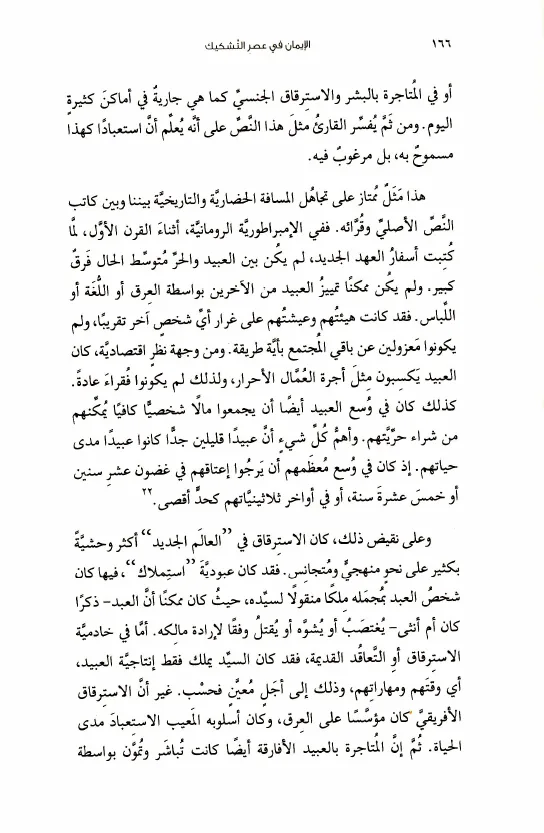 ١٦٦ الإيمان في عصر التَّشكيك
أو في المُتاجرة بالبشر والاسترقاق الجنسيّ كما هي جاريةٌ في أماكنَ كثيرةٍ
اليوم. ومن ثَمَّ يُفسِّر القارئُ مثلَ هذا النَّصِّ على أنَّه يُعلِّم أنَّ استعبادًا كهذا
مسموحٌ به، بل مرغوبٌ فيه.
هذا مَثَلٌ مُمتاز على تجاهُل المسافة الحضاريَّة والتاريخيَّة بيننا وبين كاتب
النَّصِّ الأصليِّ وقُرَّائه. ففي الإمبراطوريَّة الرومانيَّة، أثناءَ القرن الأوَّل، لمَّا
كُتِبت أسفارُ العهد الجديد، لم يكُن بين العبيد والحرِّ مُتوسِّط الحال فَرقٌ
كبير. ولم يكُن ممكنًا تمييزُ العبيد من الآخرين بواسطة العرق أو اللُّغة أو
اللِّباس. فقد كانت هيئتُهم وعيشتُهم على غرار أيِّ شخصٍ آخر تقريبًا، ولم
يكونوا مَعزولين عن باقي المُجتمع بأيَّة طريقة. ومن وجهة نظرٍ اقتصاديَّة، كان
العبيد يَكسبون مثلَ أجرة العُمَّال الأحرار، ولذلك لم يكونوا فُقراءَ عادةً.
كذلك كان في وُسع العبيد أيضًا أن يجمعوا مالًا شخصيًّا كافيًا يُمكِّنهم
من شراء حرِّيَّتهم. وأهمُّ كلِّ شيءٍ أنَّ عبيدًا قليلين جدًّا كانوا عبيدًا مدى
حياتهم. إذ كان في وُسع مُعظَمهم أن يَرجُوا إعتاقهم في غضون عشر سنين
أو خمسَ عشرةَ سنة، أو في أواخر ثلاثينيَّاتهم كحدٍّ أقصى.٢٢
وعلى نقيض ذلك، كان الاسترقاق في ”العالَم الجديد“ أكثر وحشيَّةً
بكثير على نحوٍ منهجيٍّ ومُتجانس. فقد كان عبوديَّةَ ”استِملاك“، فيها كان
شخصُ العبد بمُجمَله ملكًا منقولًا لسيِّده، حيثُ كان ممكنًا أنَّ العبد– ذكرًا
كان أم أنثى– يُغتصَبُ أو يُشوَّه أو يُقتلُ وفقًا لإرادة مالكه. أمَّا في خادميَّة
الاسترقاق أو التَّعاقُد القديمة، فقد كان السيِّد يملك فقط إنتاجيَّة العبيد،
أي وقتَهم ومهاراتِهم، وذلك إلى أجَلٍ مُعيَّنٍ فحسْب. غير أنَّ الاسترقاق
الأفريقيَّ كان مؤسَّسًا على العرق، وكان أسلوبه المَعيب الاستعبادَ مدى
الحياة. ثُمَّ إنَّ المُتاجرة بالعبيد الأفارقة أيضًا كانت تُباشَر وتُمَوَّن بواسطة